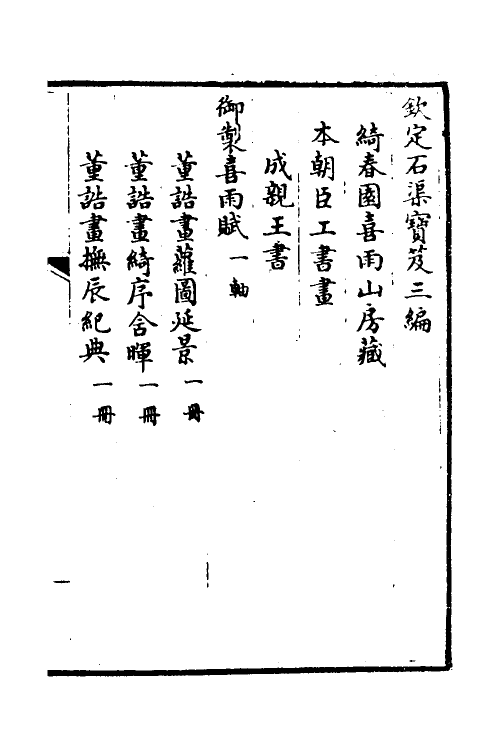 欽定石渠寶笈三編
綺春園喜雨山房藏
本朝臣工書畫
成親王書
御製喜雨賦一軸
董誥畫蘿圖延景一冊
董誥畫綺序舍暉一冊
董誥畫撫辰紀典一冊